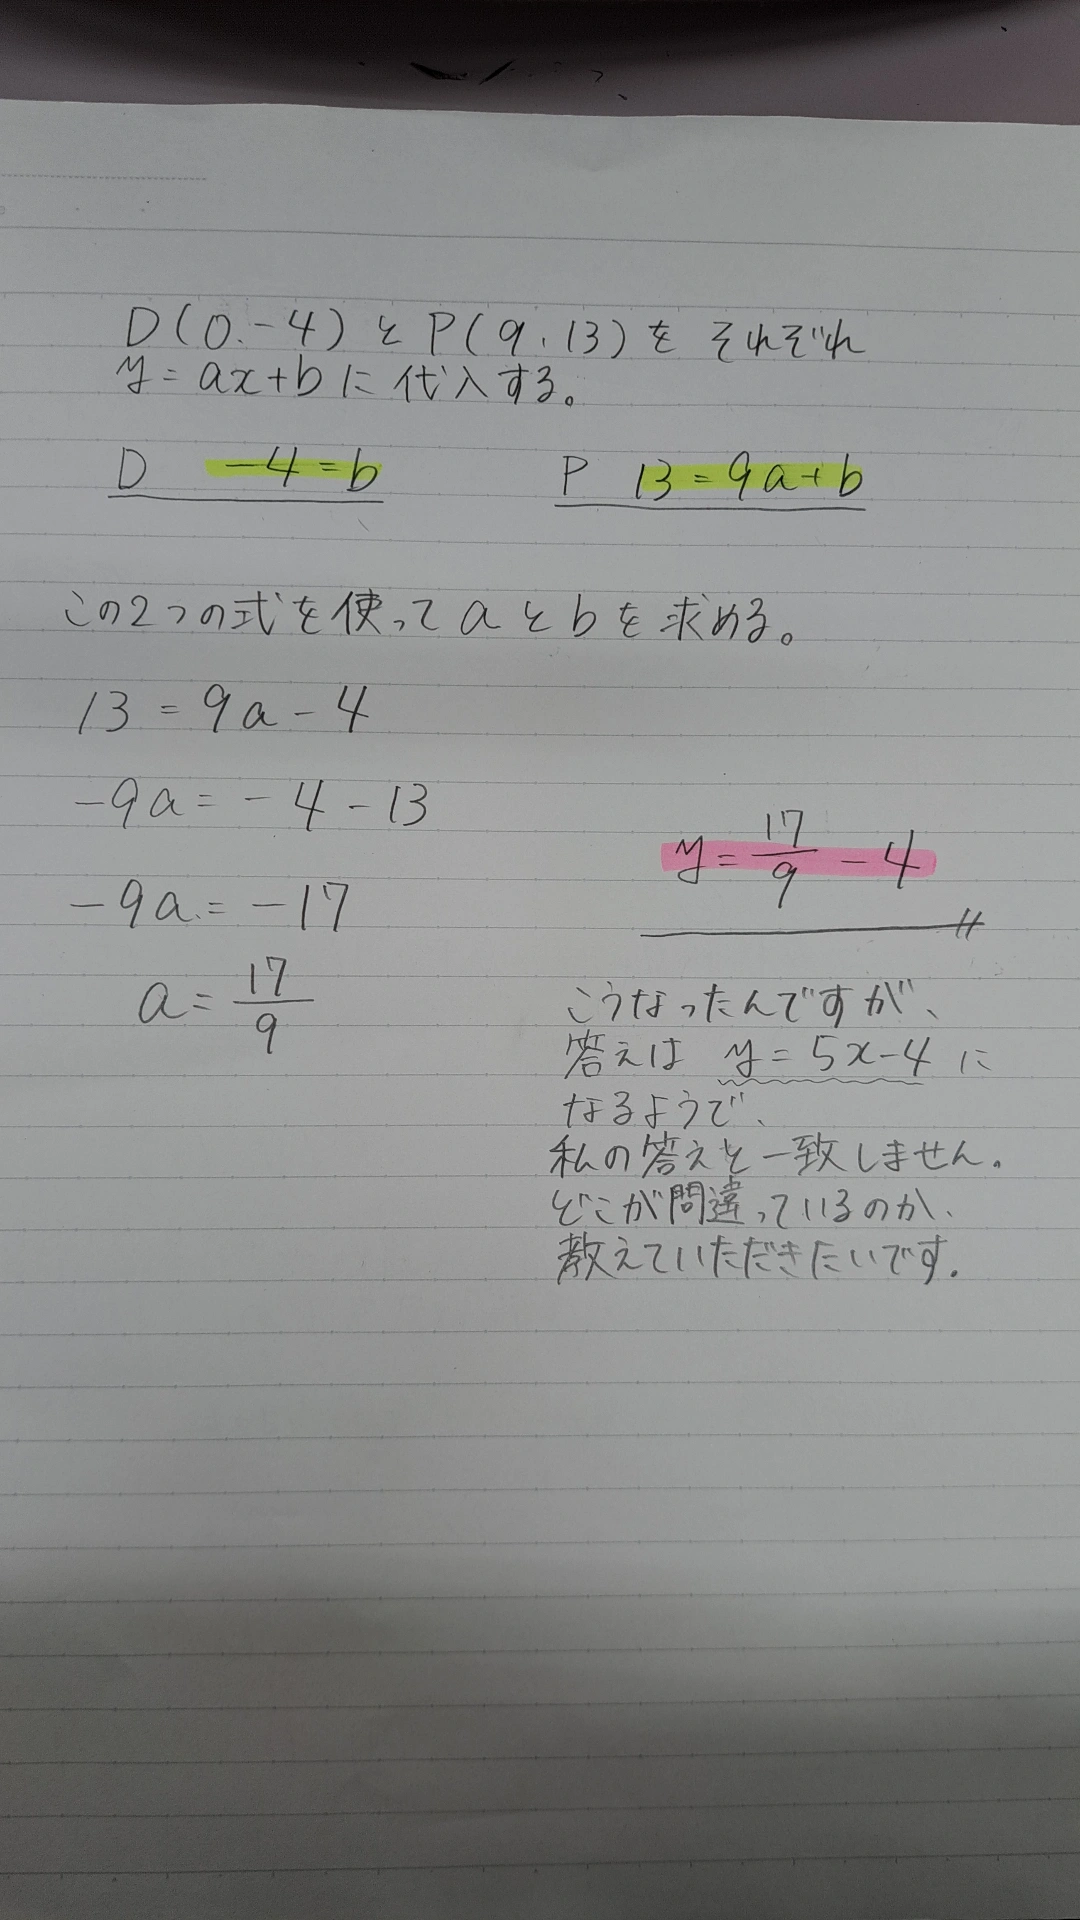 D(0.-4)とP(9.13)をそれぞれ
y=ax+bに代入する。
D -4=b P 13=9a+b
この2つの式を使ってaとbを求める。
13=9a-4
-9a=-4-13
-9a=-17
a=17/9
y=17/9-4
こうなったんですが、
答えは y=5x-4に
なるようで、
私の答えと一致しません。
どこが間違っているのか、
教えていただきたいです。